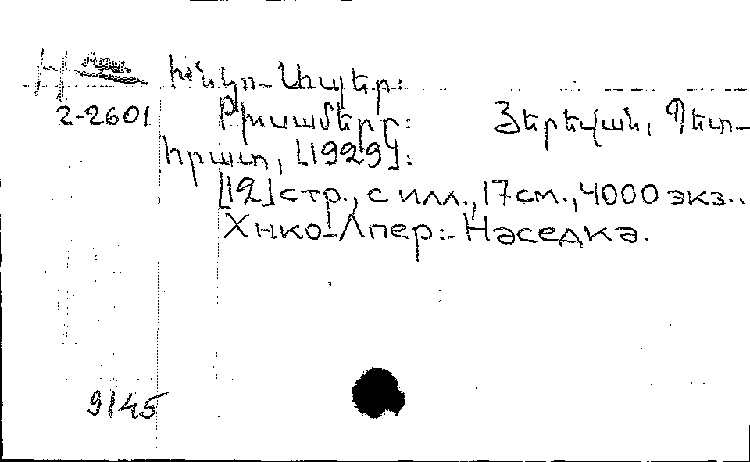 Н
Խնկո-Ապեր։
2-2601
Թխսամերը։ Յերեվան, Պետ-
հրատ, [1929]։
[12] стр., с илл., 17 см., 4000 экз..
Хнко-Апер:- Наседка.
9145